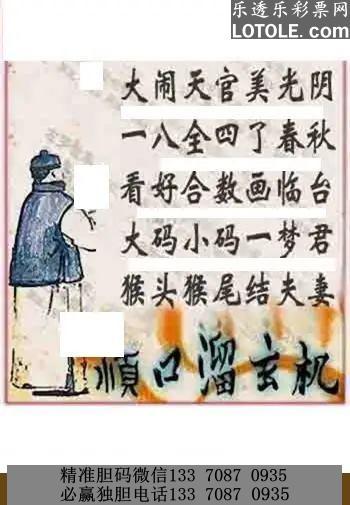 乐透乐彩票网
LOTOLE.com
大闹天官美光阴
一八全四了春秋
看好合数画临台
大码小码一梦君
猴头猴尾结夫妻
顺口溜玄机
精准胆码微信133 7087 0935
必赢独胆电话133 7087 0935